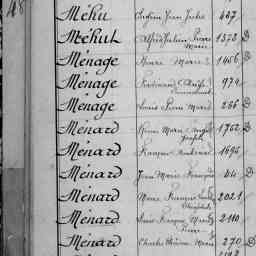 48
Méhu Eugène Jean Jules 437
Méhul Alfred Julien Pierre Marie 1373 D
Ménage Pierre Marie 1456 D
Ménage Ferdinand 974
Ménage Louis Pierre Marie 286 D
Ménard Pierre Marie Ange Joseph 1762 D
Ménard François 1696
Ménard Jean Marie François 44 D
Ménard Pierre François 2021
Ménard François Marie Pierre 2110
Ménard Charles Marie 270 D